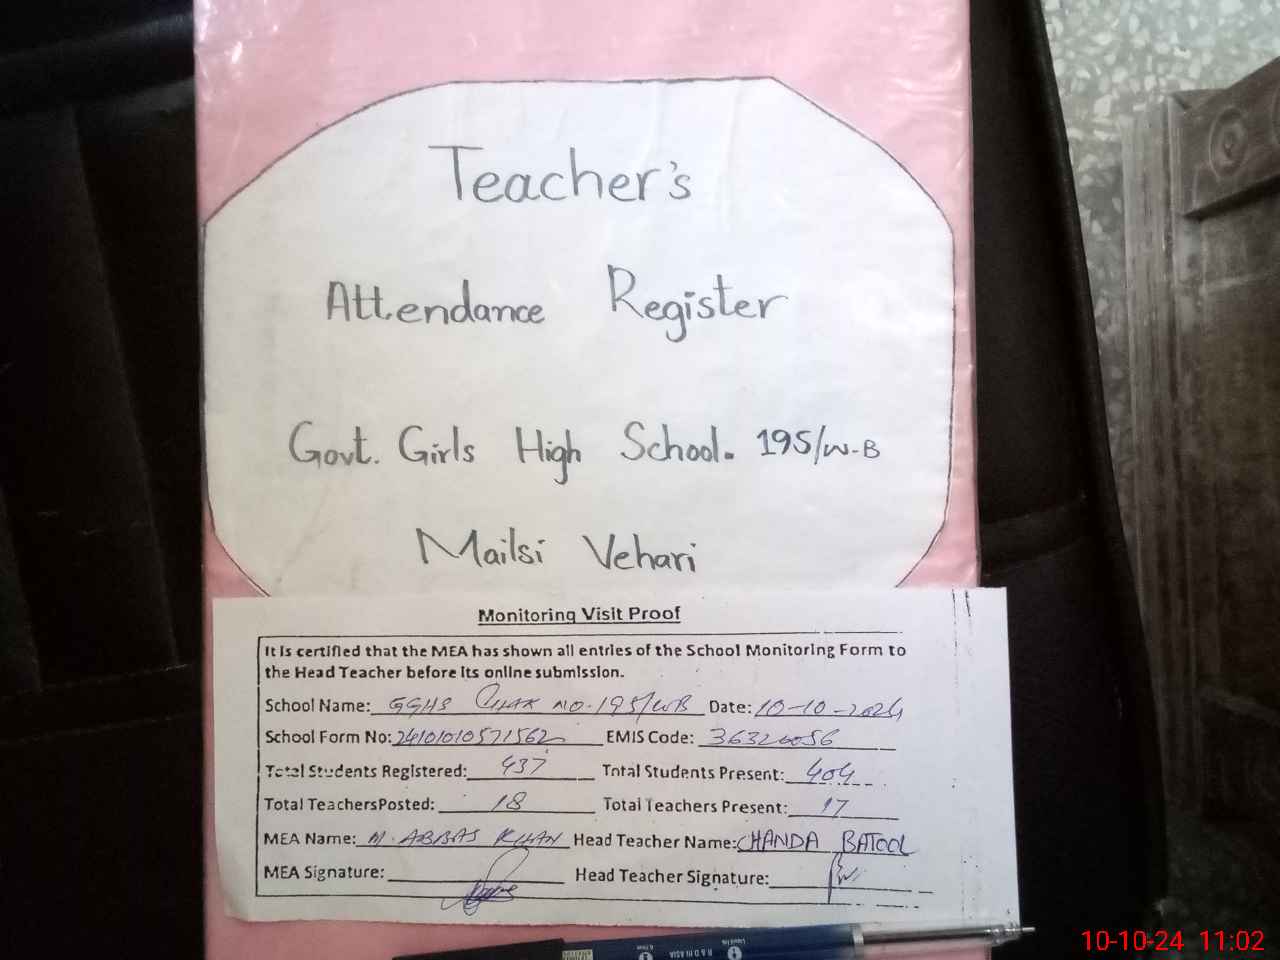 Teacher's
Attendance Register
Govt. Girls High School. 195/W-B
Mailsi Vehari
Monitoring Visit Proof
It is certified that the MEA has shown all entries of the School Monitoring Form to
the Head Teacher before its online submission.
School Name: GGHS CHAK NO. 195/WB Date: 10-10-2024
School Form No: 24101010571562 EMIS Code: 36320056
Total Students Registered: 437 Total Students Present: 404
Total TeachersPosted: 18 Total Teachers Present: 17
MEA Name: M. ABBAS KHAN Head Teacher Name: CHANDA BATOOL
MEA Signature: Head Teacher Signature:
10-10-24 11:02